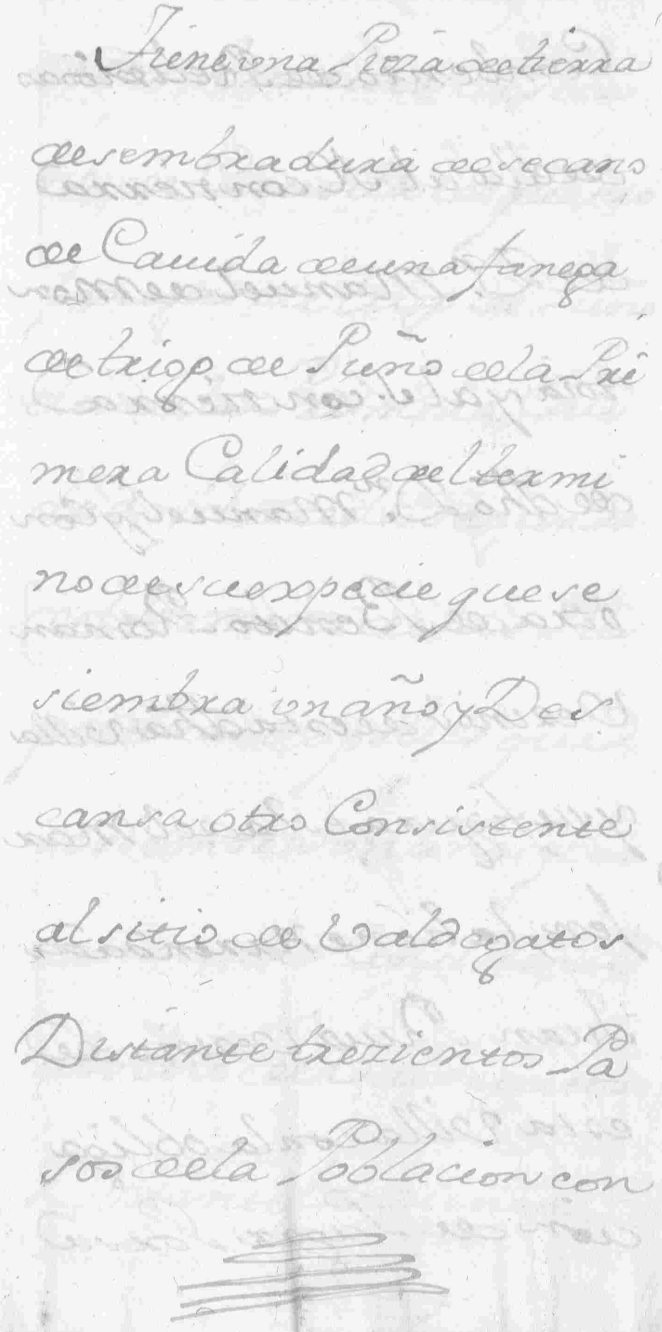 Tiene vna Pieza de tierra
de sembradura de secano
de Cauida de una fanega
de trigo de Puño de la Pri
mera Calidad del termi
no de su expecie que se
siembra vn año y Des
cansa otro Consistente
al sitio de Valdegatos
Distante trezientos Pa
sos de la Poblacion con